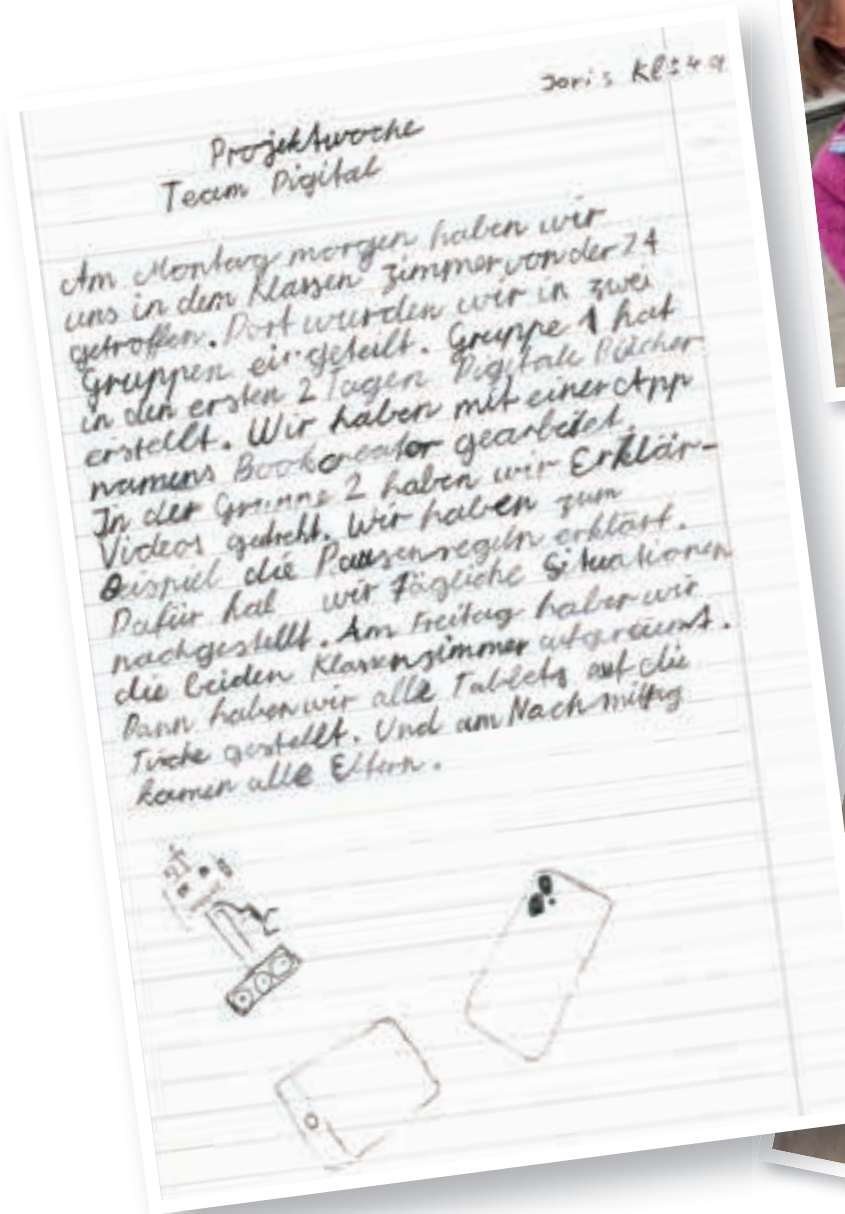 Joris Kl: 4a
Projektwoche
Team Digital
Am Montag morgen haben wir
uns in dem Klassen zimmer von der
getroffen. Dort wurden wir in zwei
Gruppen eingeteilt. Gruppe 1 hat
in den ersten 2 Tagen Digitale Bücher
erstellt. Wir haben mit einer App
namens Bookcreator gearbeitet.
In der Gruppe 2 haben wir Erklär-
Videos gedreht. Wir haben zum
Beispiel die Pausenregeln erklärt.
Dafür hab wir tägliche Situationen
nachgestellt. Am Freitag haben wir
die beiden Klassenzimmer aufgeräumt.
Dann haben wir alle Tablets auf die
Tische gestellt. Und am Nachmittag
kamen alle Eltern.